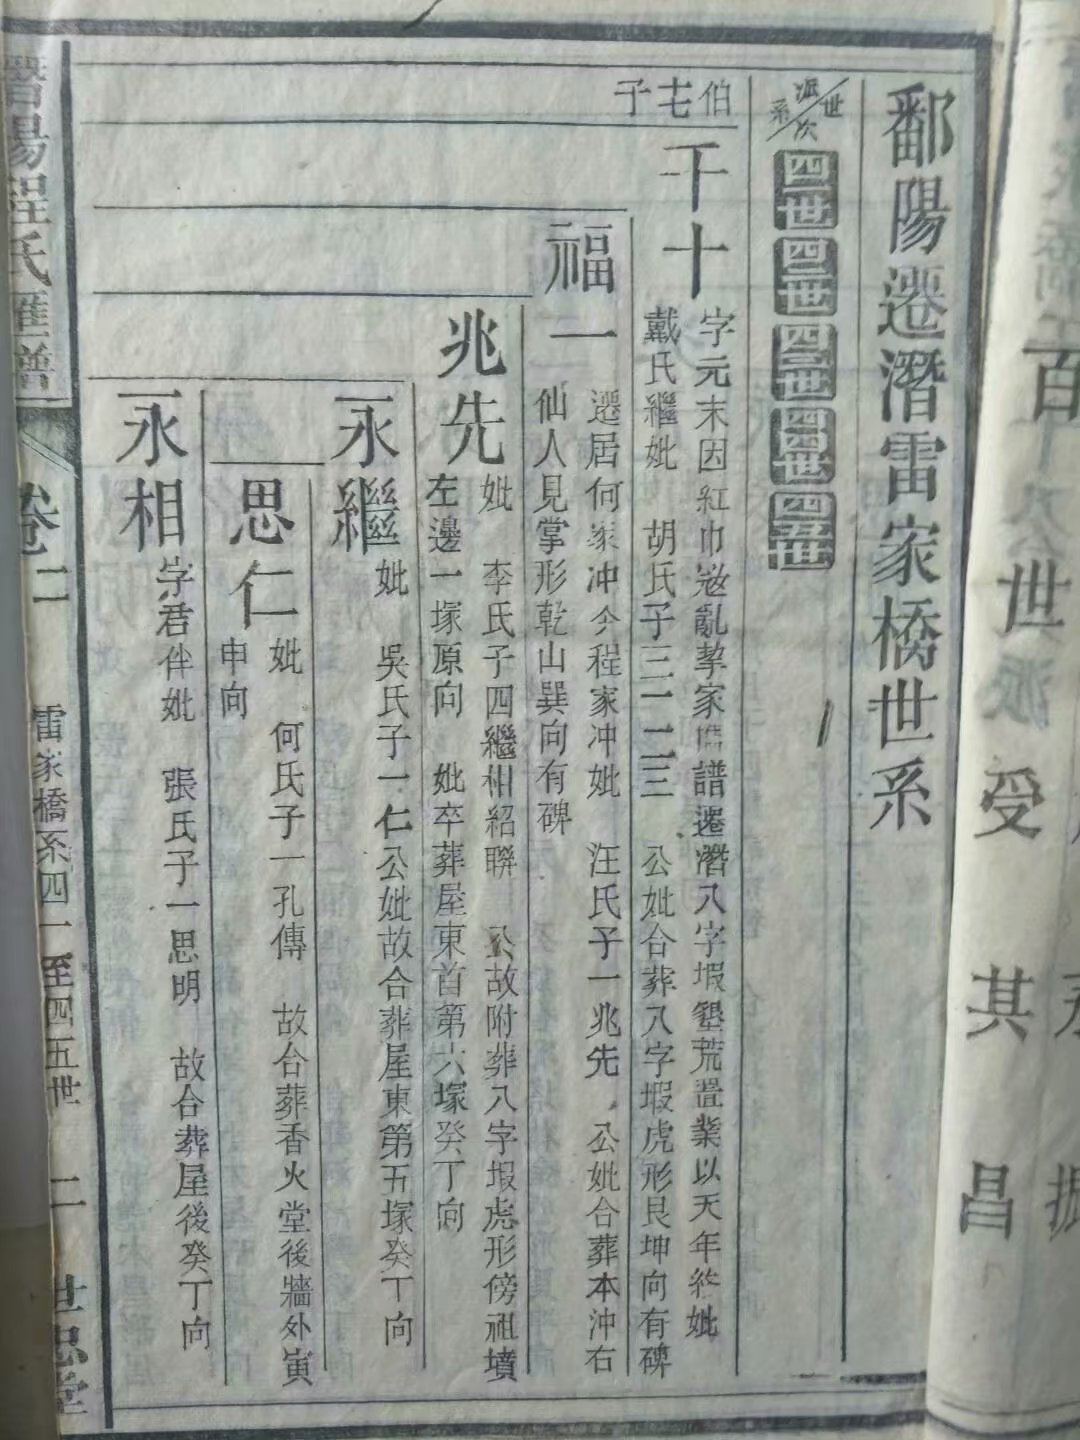 鄱陽遷潛雷家橋世系
世次
派系
四一世
四二世
四三世
四四世
四五世
伯七子
千十
字元末因紅巾寇亂挈家携譜遷潛八字塅墾荒置業以天年終妣
戴氏繼妣 胡氏子三一二三 公妣合葬八字塅虎形艮坤向有碑
福一
遷居何家冲今程家冲妣 汪氏子一兆先 公妣合葬本冲右
仙人見掌形乾山巽向有碑
兆先
妣 李氏子四繼相紹聯 公故附葬八字塅虎形傍祖墳
左邊一塚原向 妣卒葬屋東首第六塚癸丁向
永繼
妣 吳氏子一仁公妣故合葬屋東第五塚癸丁向
思仁
妣 何氏子一孔傳 故合葬香火堂後牆外寅
申向
永相
字君伴妣 張氏子一思明 故合葬屋後癸丁向
晉陽程氏匯譜
卷二
雷家橋系四一至四五世
二
世忠堂
百
世
派
受
其
昌
永
振